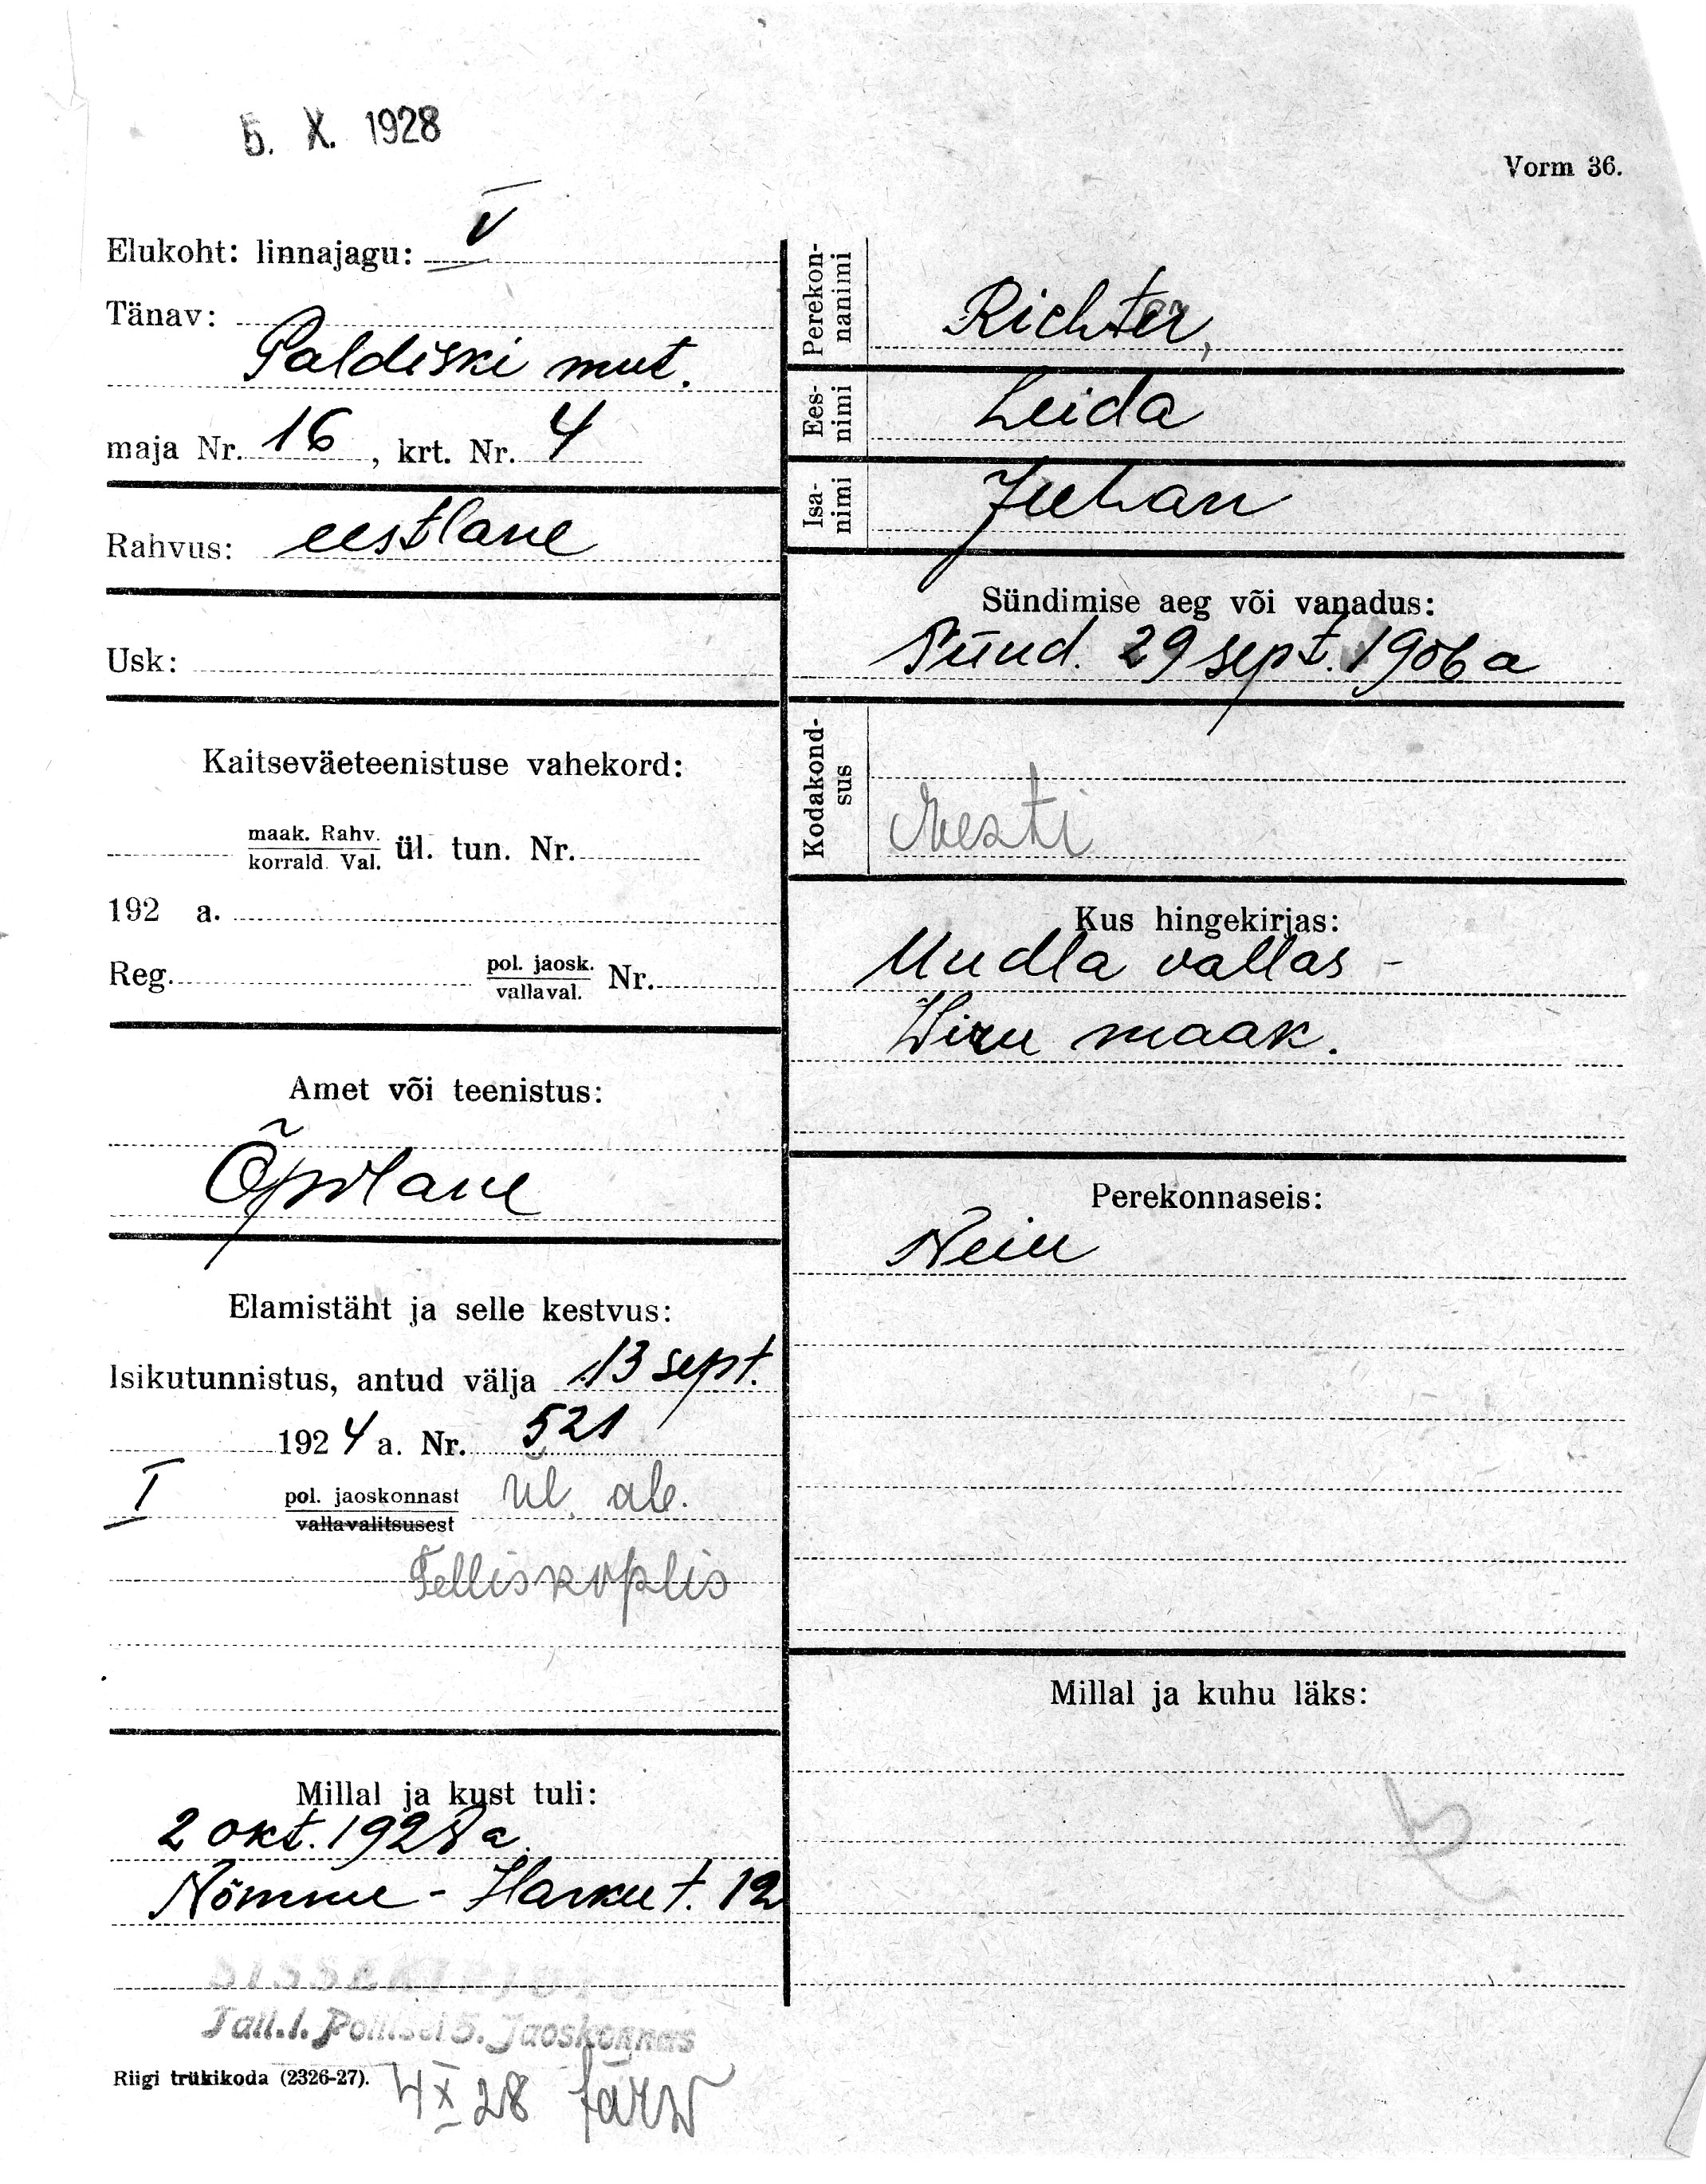 5. X. 1928
Vorm 36.
Elukoht: linnajagu: V
Tänav:
Paldiski mnt.
maja Nr. 16, krt. Nr. 4
Rahvus: eestlane
Usk:
Kaitseväeteenistuse vahekord:
maak. Rahv.
korrald. Val. ül. tun. Nr.
192 a.
Reg. pol. jaosk.
vallaval. Nr.
Amet või teenistus:
Õpilane
Elamistäht ja selle kestvus:
Isikutunnistus, antud välja 13 sept.
1924 a. Nr. 521
I pol. jaoskonnast
vallavalitsusest
Telliskoplis
Millal ja kust tuli:
2 okt. 1928 a.
Nõmme - Harku t. 12
Perekonnanimi
Richter,
Eesnimi
Leida
Isanimi
Juhan
Sündimise aeg või vanadus:
Sünd. 29 sept. 1906 a
Kodakondsus
Eesti
Kus hingekirjas:
Undla vallas -
Wiru maak.
Perekonnaseis:
Neiu
Millal ja kuhu läks:
SISSEKIRJUTATUD
Tall.l. Politsei 5. Jaoskonnas
Riigi trükikoda (2326-27).
4 X 28